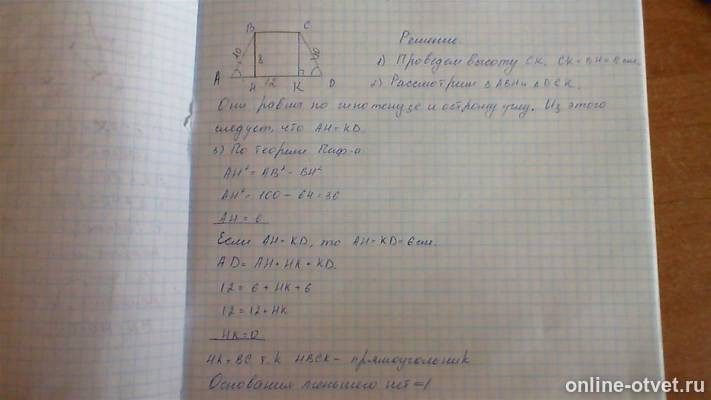 B C
10 8 10
A H 12 K D
Решение.
1) Проведём высоту CK. CK = BH = 8 см.
2) Рассмотрим △ABH и △DCK.
Они равны по гипотенузе и острому углу. Из этого
следует, что AH = KD.
3) По теореме Пиф-а
AH² = AB² - BH²
AH² = 100 - 64 = 36
AH = 6
Если AH = KD, то AH = KD = 6 см.
AD = AH + HK + KD.
12 = 6 + HK + 6
12 = 12 + HK
HK = 0
HK = BC т.к HBCK - прямоугольник
Основания меньшего нет =)
online-otvet.ru